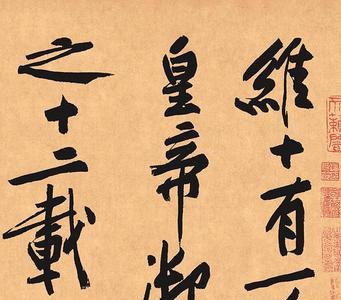 維十有一
皇帝御
之十二載